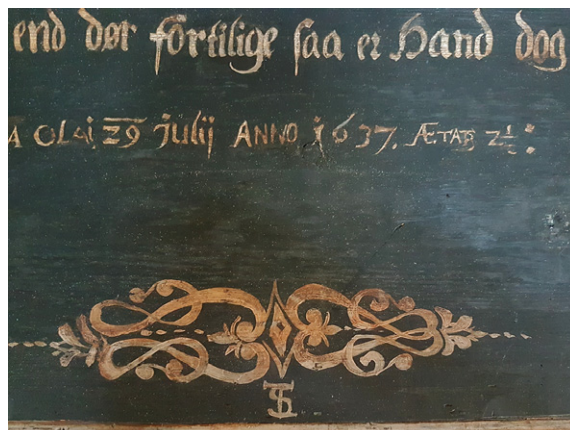 end dør fortilige saa er Hand dog
OLAI 29 julij ANNO 1637. ÆTAB 2½: